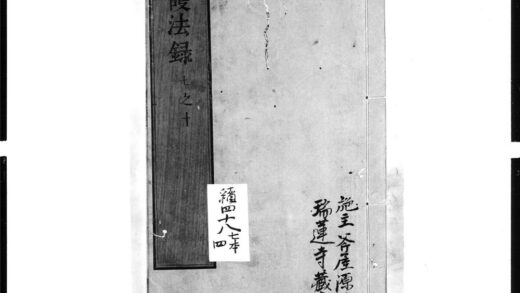 施主斧屋源
瑞蓮寺藏
續四十八
七本
四
護法録 七之十